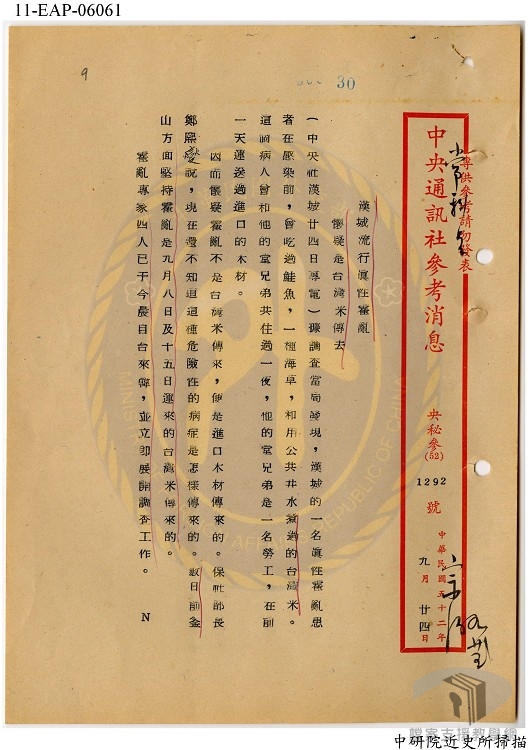 11-EAP-06061
9
30
專供參考請勿發表
中央通訊社參考消息
央秘參(52)
1292
號
中華民國五十二年
九月廿四日
漢城流行眞性霍亂
懷疑是台灣米傳去
(中央社漢城廿四日專電)據調查當局發現,漢城的一名眞性霍亂患
者在感染前,曾吃過鮭魚,一種海草,和用公共井水煮過的台灣米。
這病人曾和他的堂兄弟共住過一夜,他的堂兄弟是一名勞工,在前
一天運送過進口的木材。
因而懷疑霍亂不是台灣米傳來,便是進口木材傳來的。保社部長
鄭熙燮說,現在還不知道這種危險性的病症是怎樣傳來的。數日前釜
山方面堅持霍亂是九月八日及十五日運來的台灣米傳來的。
霍亂專家四人已于今晨自台來韓,並立即展開調查工作。 N
檔案支援教學網
中研院近史所掃描